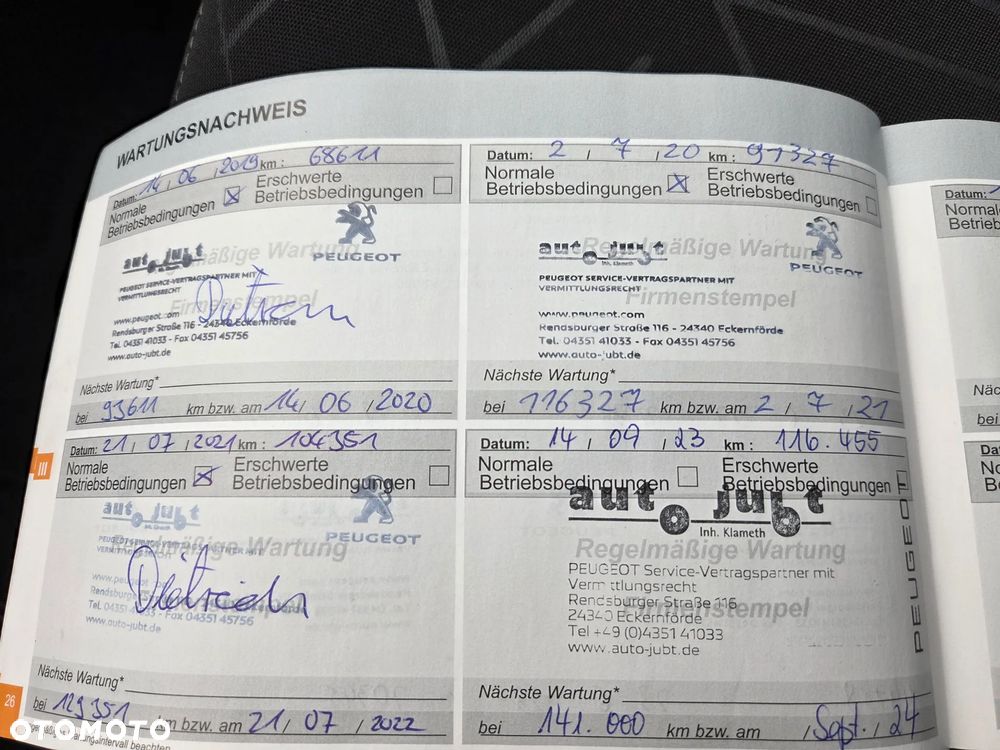 WARTUNGSNACHWEIS
Datum: 14 / 06 / 2019 km : 68611
Normale Betriebsbedingungen ☒ Erschwerte Betriebsbedingungen ☐
auto jubt
PEUGEOT
Regelmäßige Wartung
PEUGEOT SERVICE-VERTRAGSPARTNER MIT
VERMITTLUNGSRECHT
Firmenstempel
www.peugeot.com
Rendsburger Straße 116 - 24340 Eckernförde
Tel. 04351 41033 - Fax 04351 45756
www.auto-jubt.de
Nächste Wartung*
bei 93611 km bzw. am 14 / 06 / 2020
Datum: 2 / 7 / 20 km : 91327
Normale Betriebsbedingungen ☒ Erschwerte Betriebsbedingungen ☐
auto jubt
Inh. Klameth
PEUGEOT
Regelmäßige Wartung
PEUGEOT SERVICE-VERTRAGSPARTNER MIT
VERMITTLUNGSRECHT
Firmenstempel
www.peugeot.com
Rendsburger Straße 116 - 24340 Eckernförde
Tel. 04351 41033 - Fax 04351 45756
www.auto-jubt.de
Nächste Wartung*
bei 116327 km bzw. am 2 / 7 / 21
Datum: 21 / 07 / 2021 km : 104351
Normale Betriebsbedingungen ☒ Erschwerte Betriebsbedingungen ☐
auto jubt
PEUGEOT
Regelmäßige Wartung
PEUGEOT SERVICE-VERTRAGSPARTNER MIT
www.peugeot
Tel. 04351 - Fax 04351 45756
www.auto-jubt.de
Nächste Wartung*
bei 129351 km bzw. am 21 / 07 / 2022
Wartungsintervall beachten
Datum: 14 / 09 / 23 km : 116.455
Normale Betriebsbedingungen ☐ Erschwerte Betriebsbedingungen ☐
auto jubt
Inh. Klameth
Regelmäßige Wartung
PEUGEOT Service-Vertragspartner mit
Vermittlungsrecht
Rendsburger Straße 116
24340 Eckernförde
Firmenstempel
Tel +49 (0)4351 41033
www.auto-jubt.de
PEUGEOT
Nächste Wartung*
bei 141.000 km bzw. am / Sept. / 24
III
26
OTOMOTO
Datum:
bei